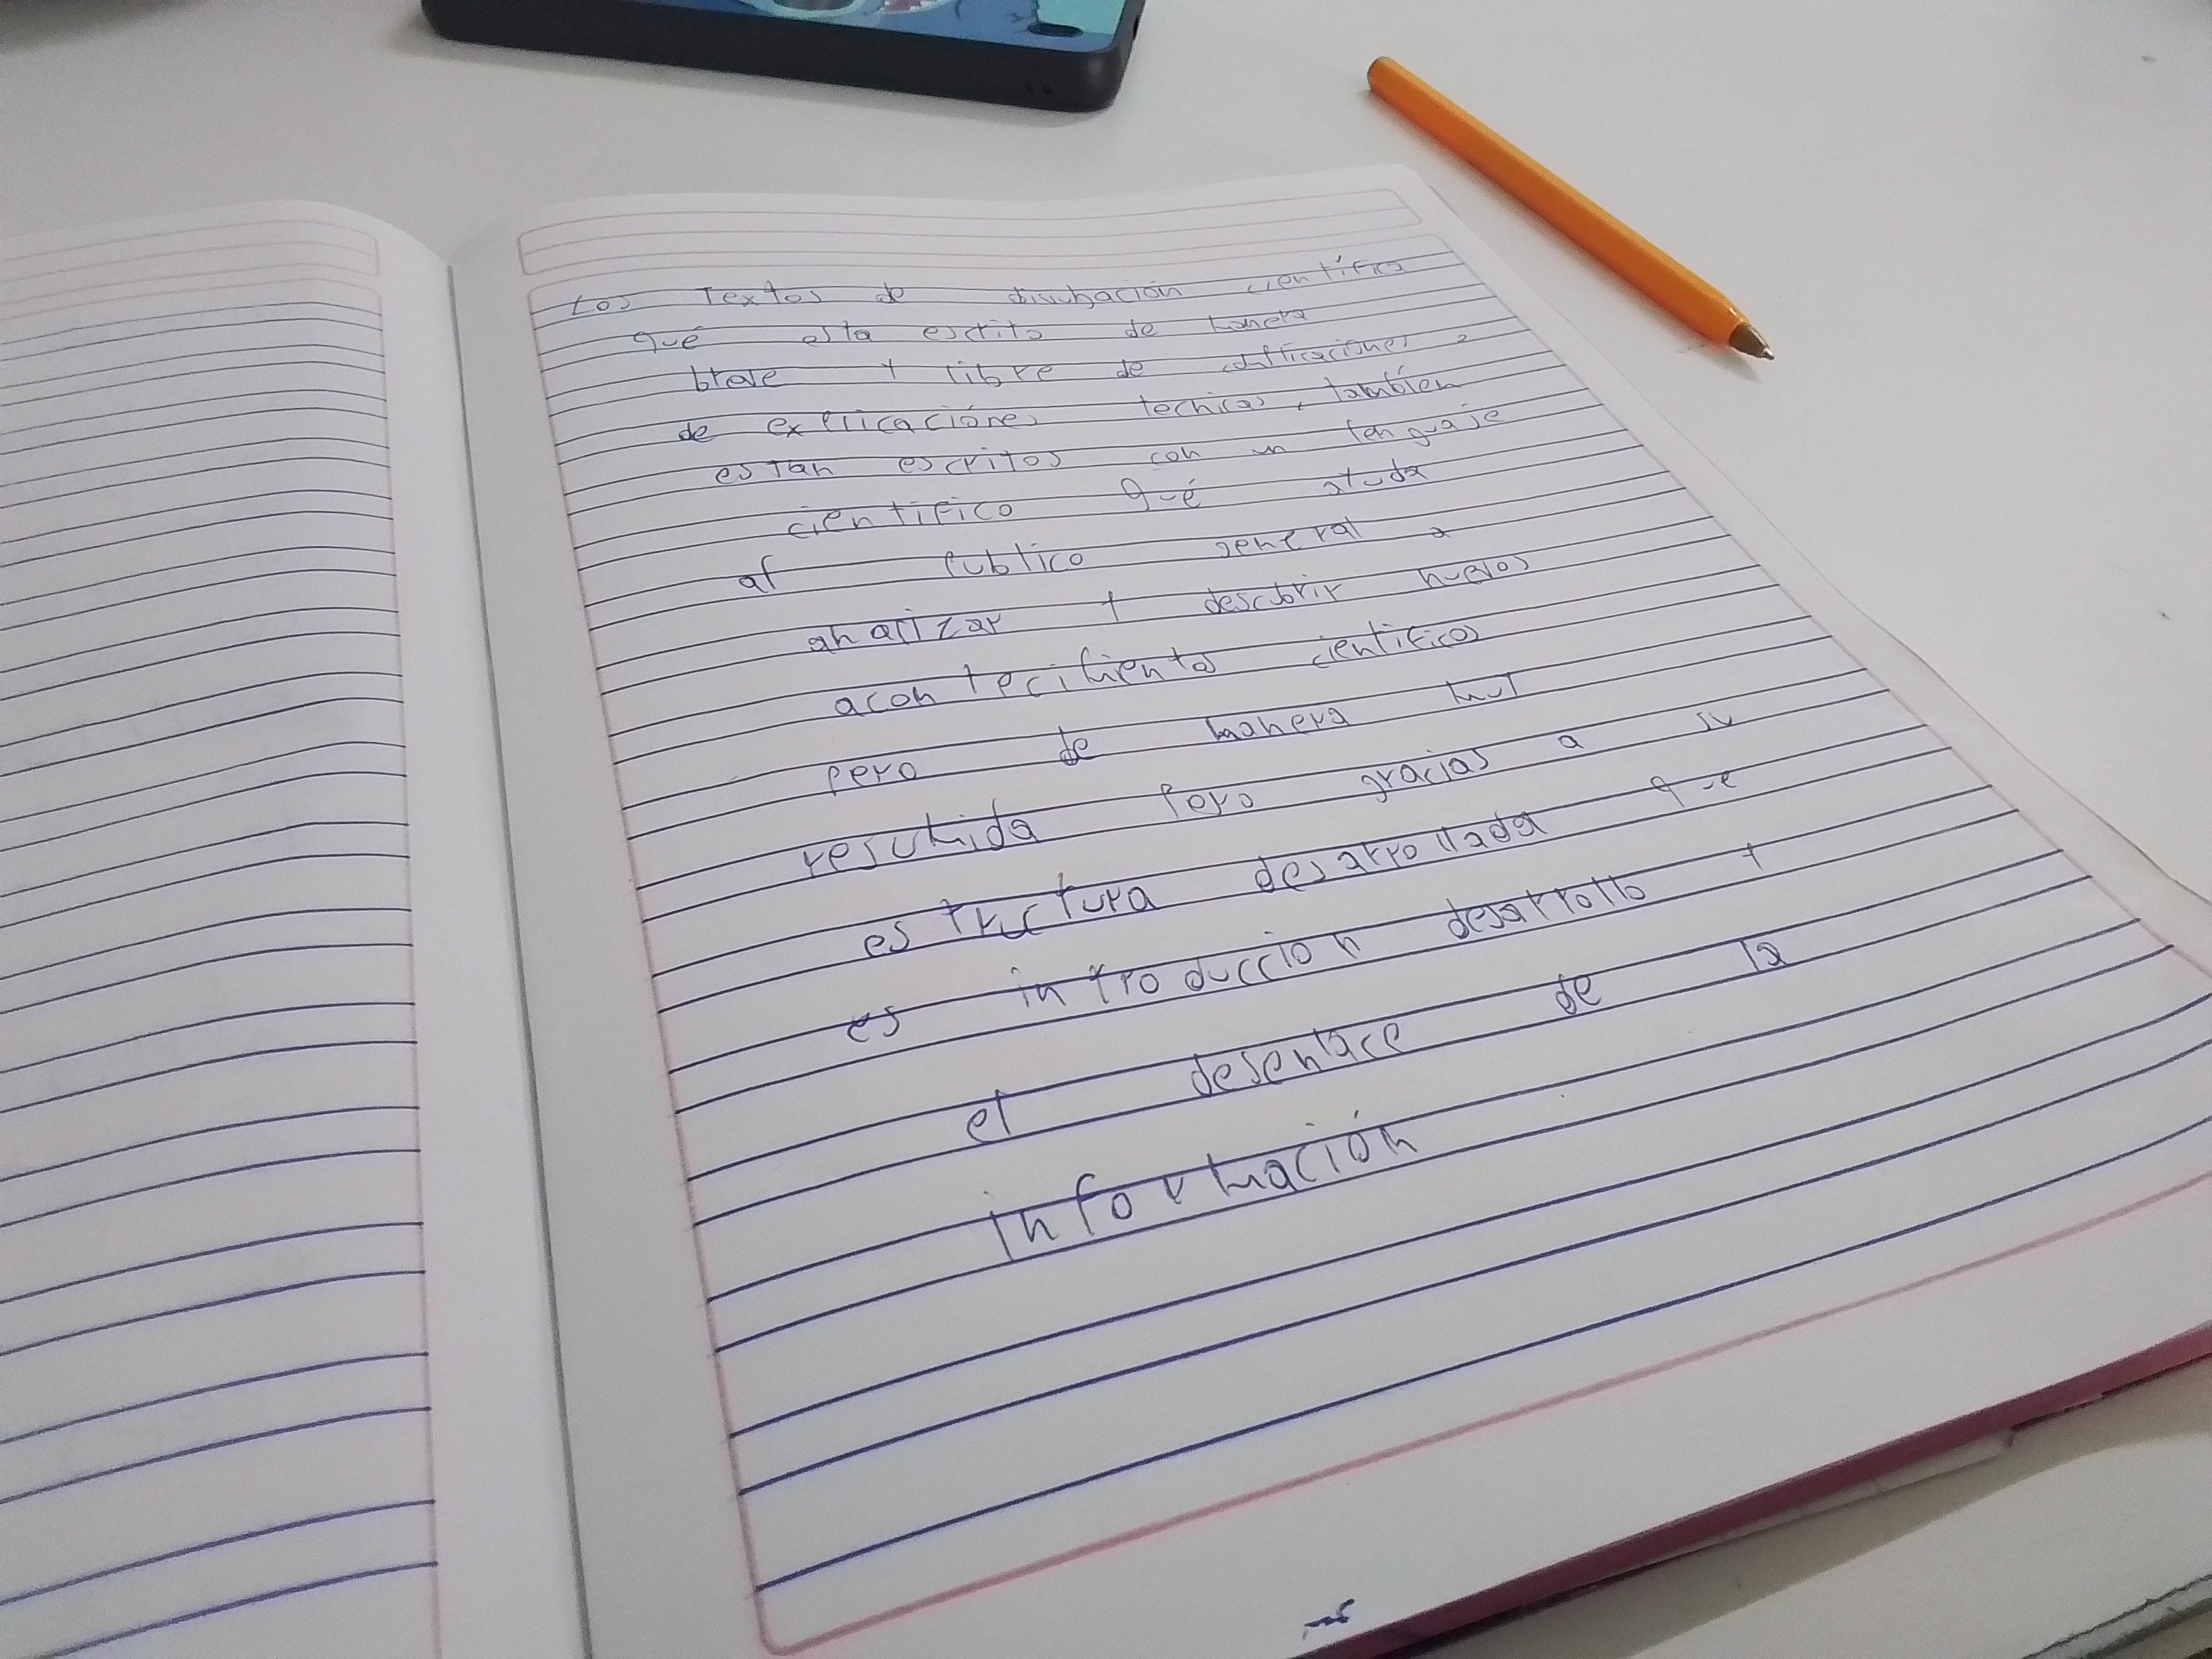 Los Textos de divulgación científica
qué esta escrito de manera
breve y libre de
de explicaciónes tecnicas, también
estan escritos con un lenguaje
cientifico qué ayuda
al publico general a
analizar y descubrir nuevos
acontecimientos cientificos
pero de manera muy
resumida pero gracias a su
estructura desarrollada que
es introduccion desarrollo y
el desenlace de la
información